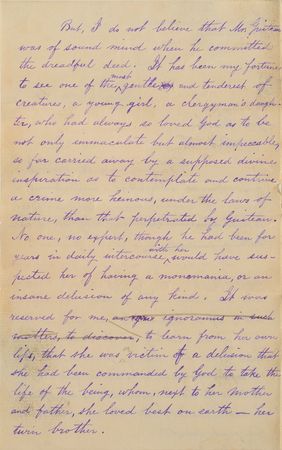 But, I do not believe that Mr. Guiteau
was of sound mind when he committed
the dreadful deed. It has been my fortune
to see one of the most gentle and tenderest of
creatures, a young girl, a clergyman's daugh-
ter, who had always so loved God as to be
not only immaculate but almost impeccable,
so far carried away by a supposed divine
inspiration as to contemplate and contrive
a crime more heinous, under the laws of
nature, than that perpetrated by Guiteau.
No one, no expert, though he had been for
years in daily intercourse with her, would have sus-
pected her of having a monomania, or an
insane delusion of any kind. It was
reserved for me, an ignoramus in such
matters, to discover, to learn from her own
lips, that she was victim of a delusion that
she had been commanded by God to take the
life of the being, whom, next to her mother
and father, she loved best on earth — her
twin brother.